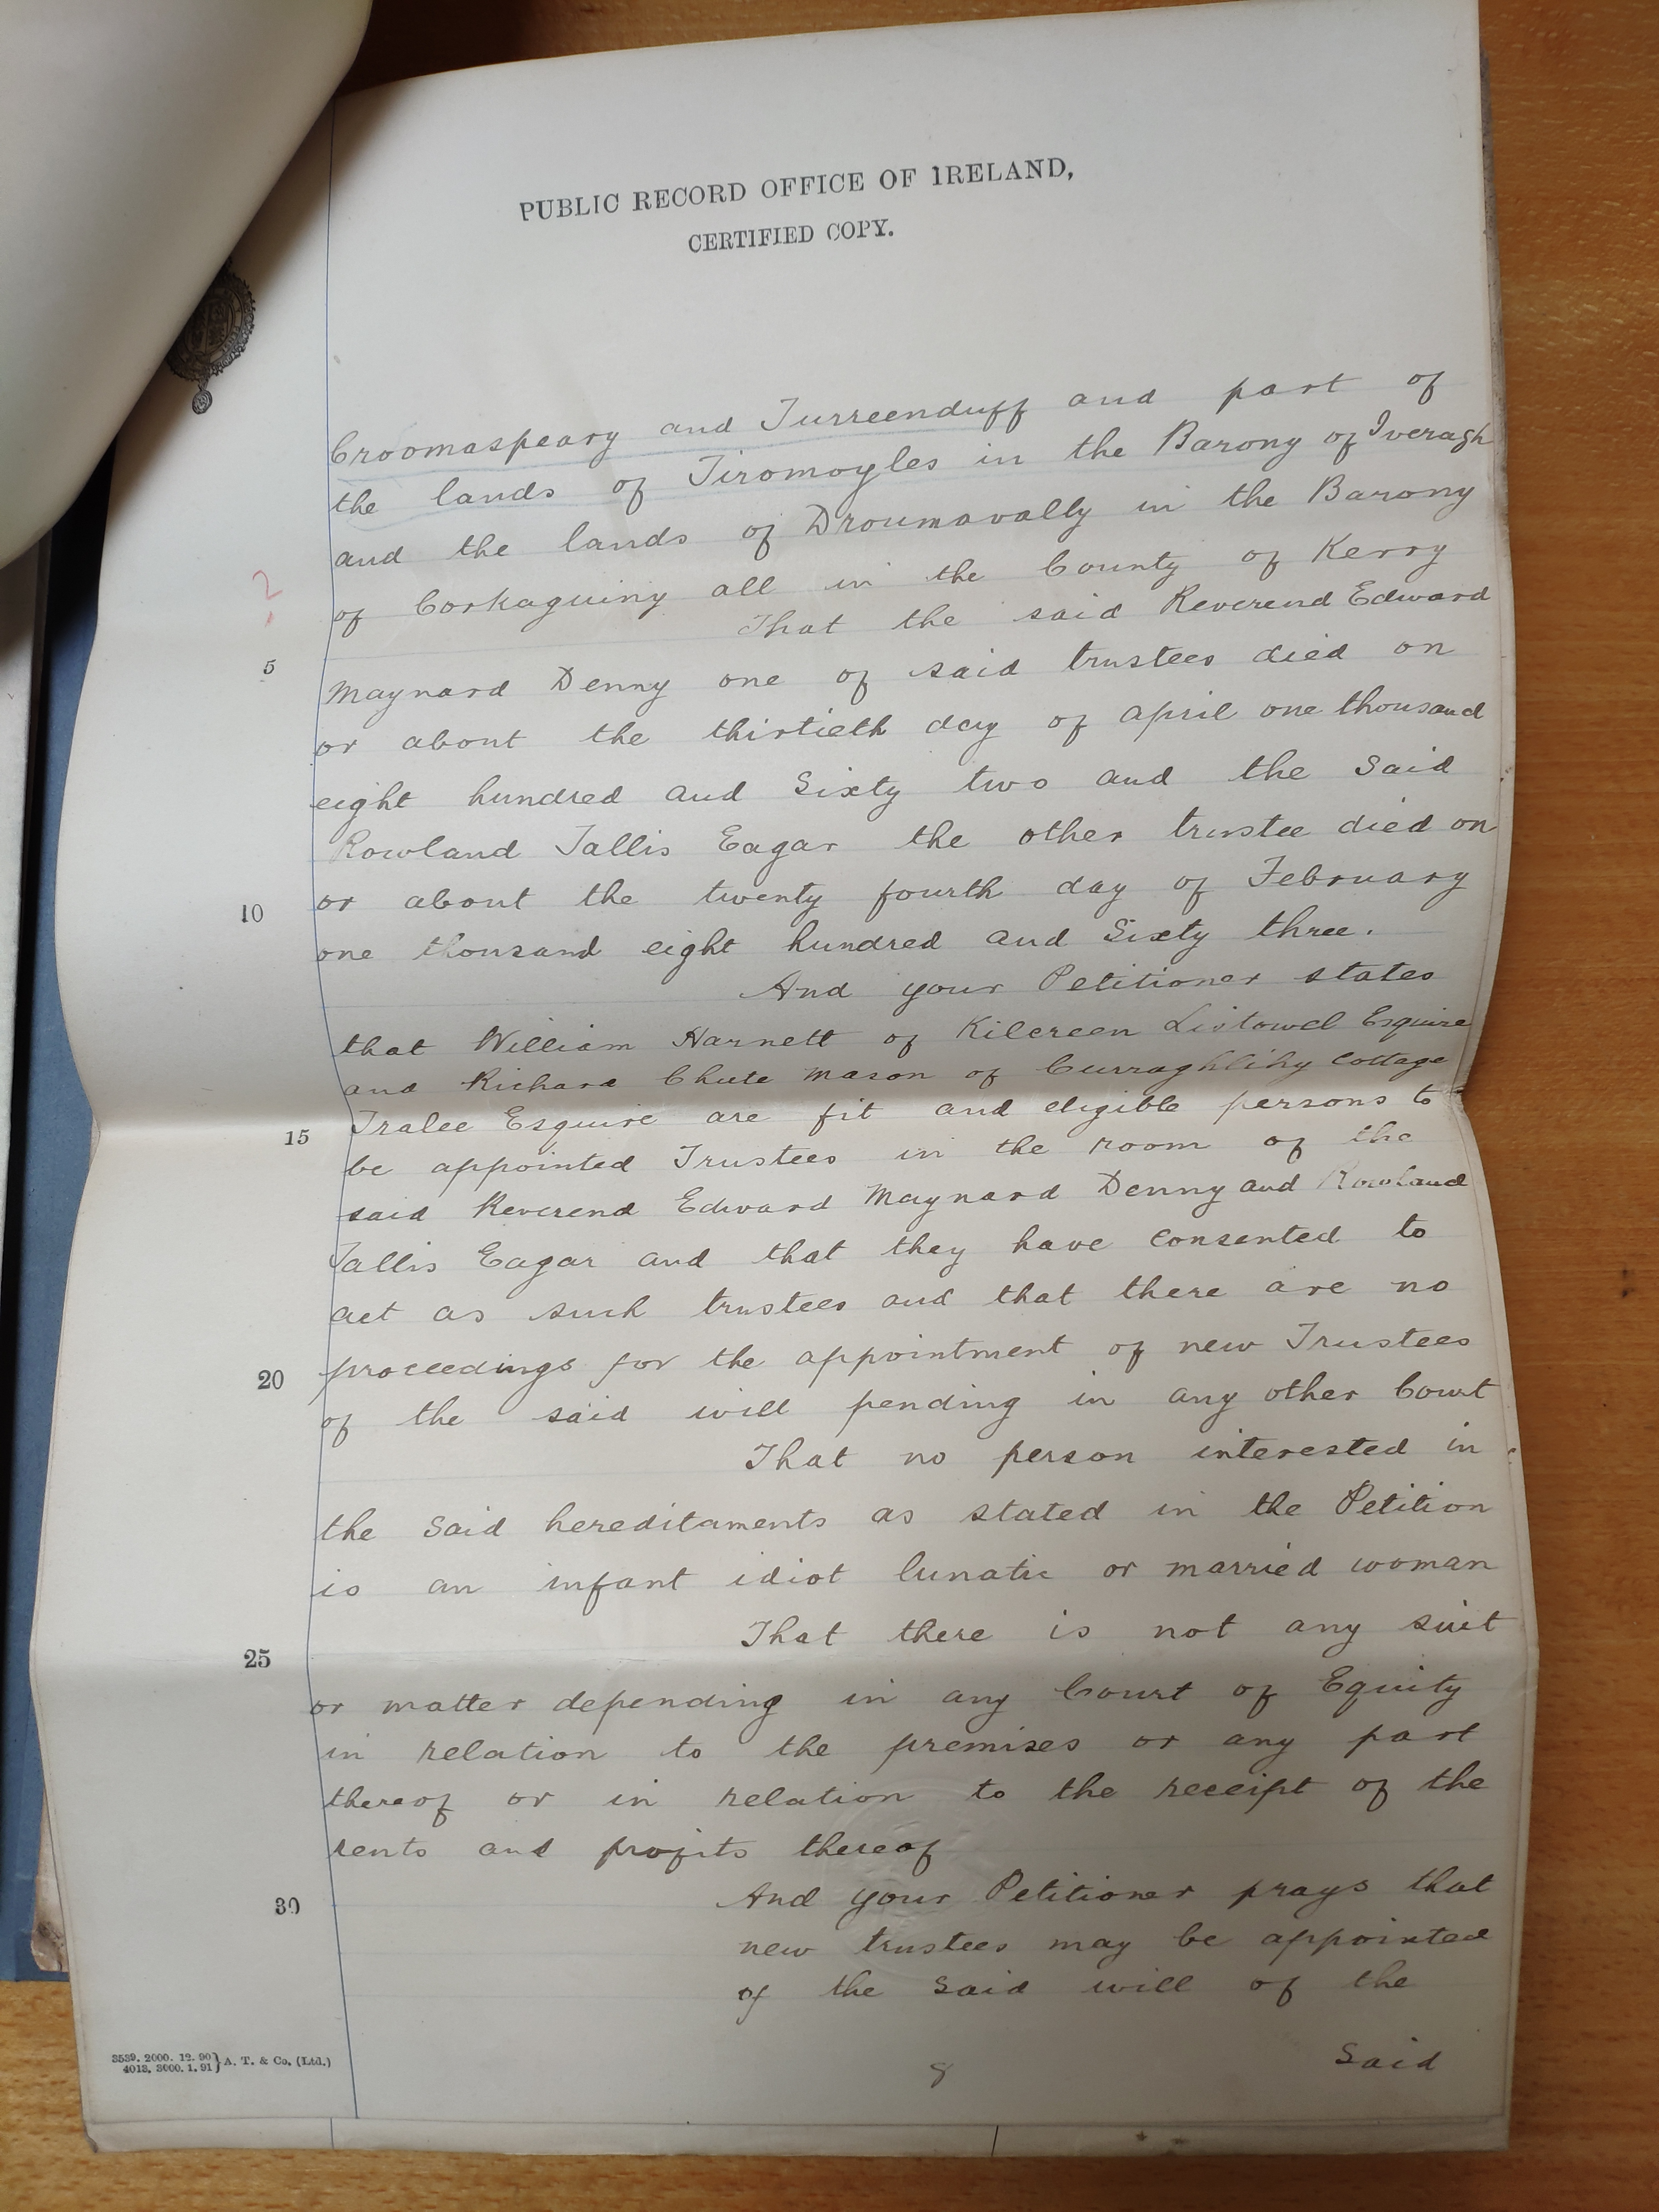 PUBLIC RECORD OFFICE OF IRELAND,
CERTIFIED COPY.
Croomaspeary and Turreenduff and part of
the lands of Tiromoyles in the Barony of Iveragh
and the lands of Droumavally in the Barony
of Corkaguiny all in the County of Kerry
2
That the said Reverend Edward
5
Maynard Denny one of said trustees died on
or about the thirtieth day of April one thousand
eight hundred and Sixty two and the Said
Rowland Tallis Eagar the other trustee died on
10
or about the twenty fourth day of February
one thousand eight hundred and Sixty three.
And your Petitioner states
that William Harnett of Kilcreen Listowel Esquire
and Richard Chute Mason of Cottage
15
Tralee Esquire are fit and eligible persons to
be appointed Trustees in the room of the
said Reverend Edward Maynard Denny and Rowland
Tallis Eagar and that they have consented to
act as such trustees and that there are no
20
proceedings for the appointment of new Trustees
of the said will pending in any other Court
That no person interested in
the Said hereditaments as stated in the Petition
is an infant idiot lunatic or married woman
That there is not any suit
25
or matter depending in any Court of Equity
in relation to the premises or any part
thereof or in relation to the receipt of the
rents and profits thereof
30
And your Petitioner prays that
new trustees may be appointed
of the Said will of the
Said
8
3539. 2000. 12. 90 } A. T. & Co. (Ltd.)
4013. 3000. 1. 91